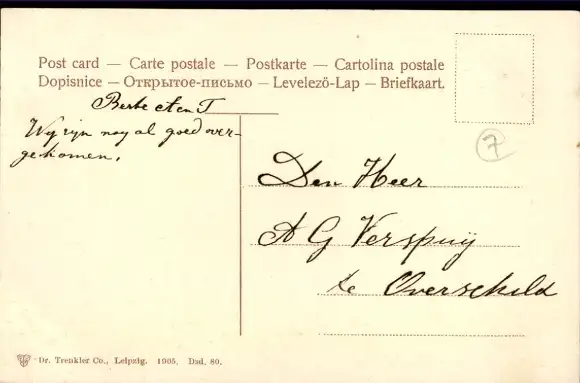 Post card — Carte postale — Postkarte — Cartolina postale
Dopisnice — Открытое-письмо — Levelező-Lap — Briefkaart.
Wij zijn nog al goed over-
gekomen.
7
Den Heer
A G Verspuij
te Overschild
Dr. Trenkler Co., Leipzig. 1905. Dsd. 80.